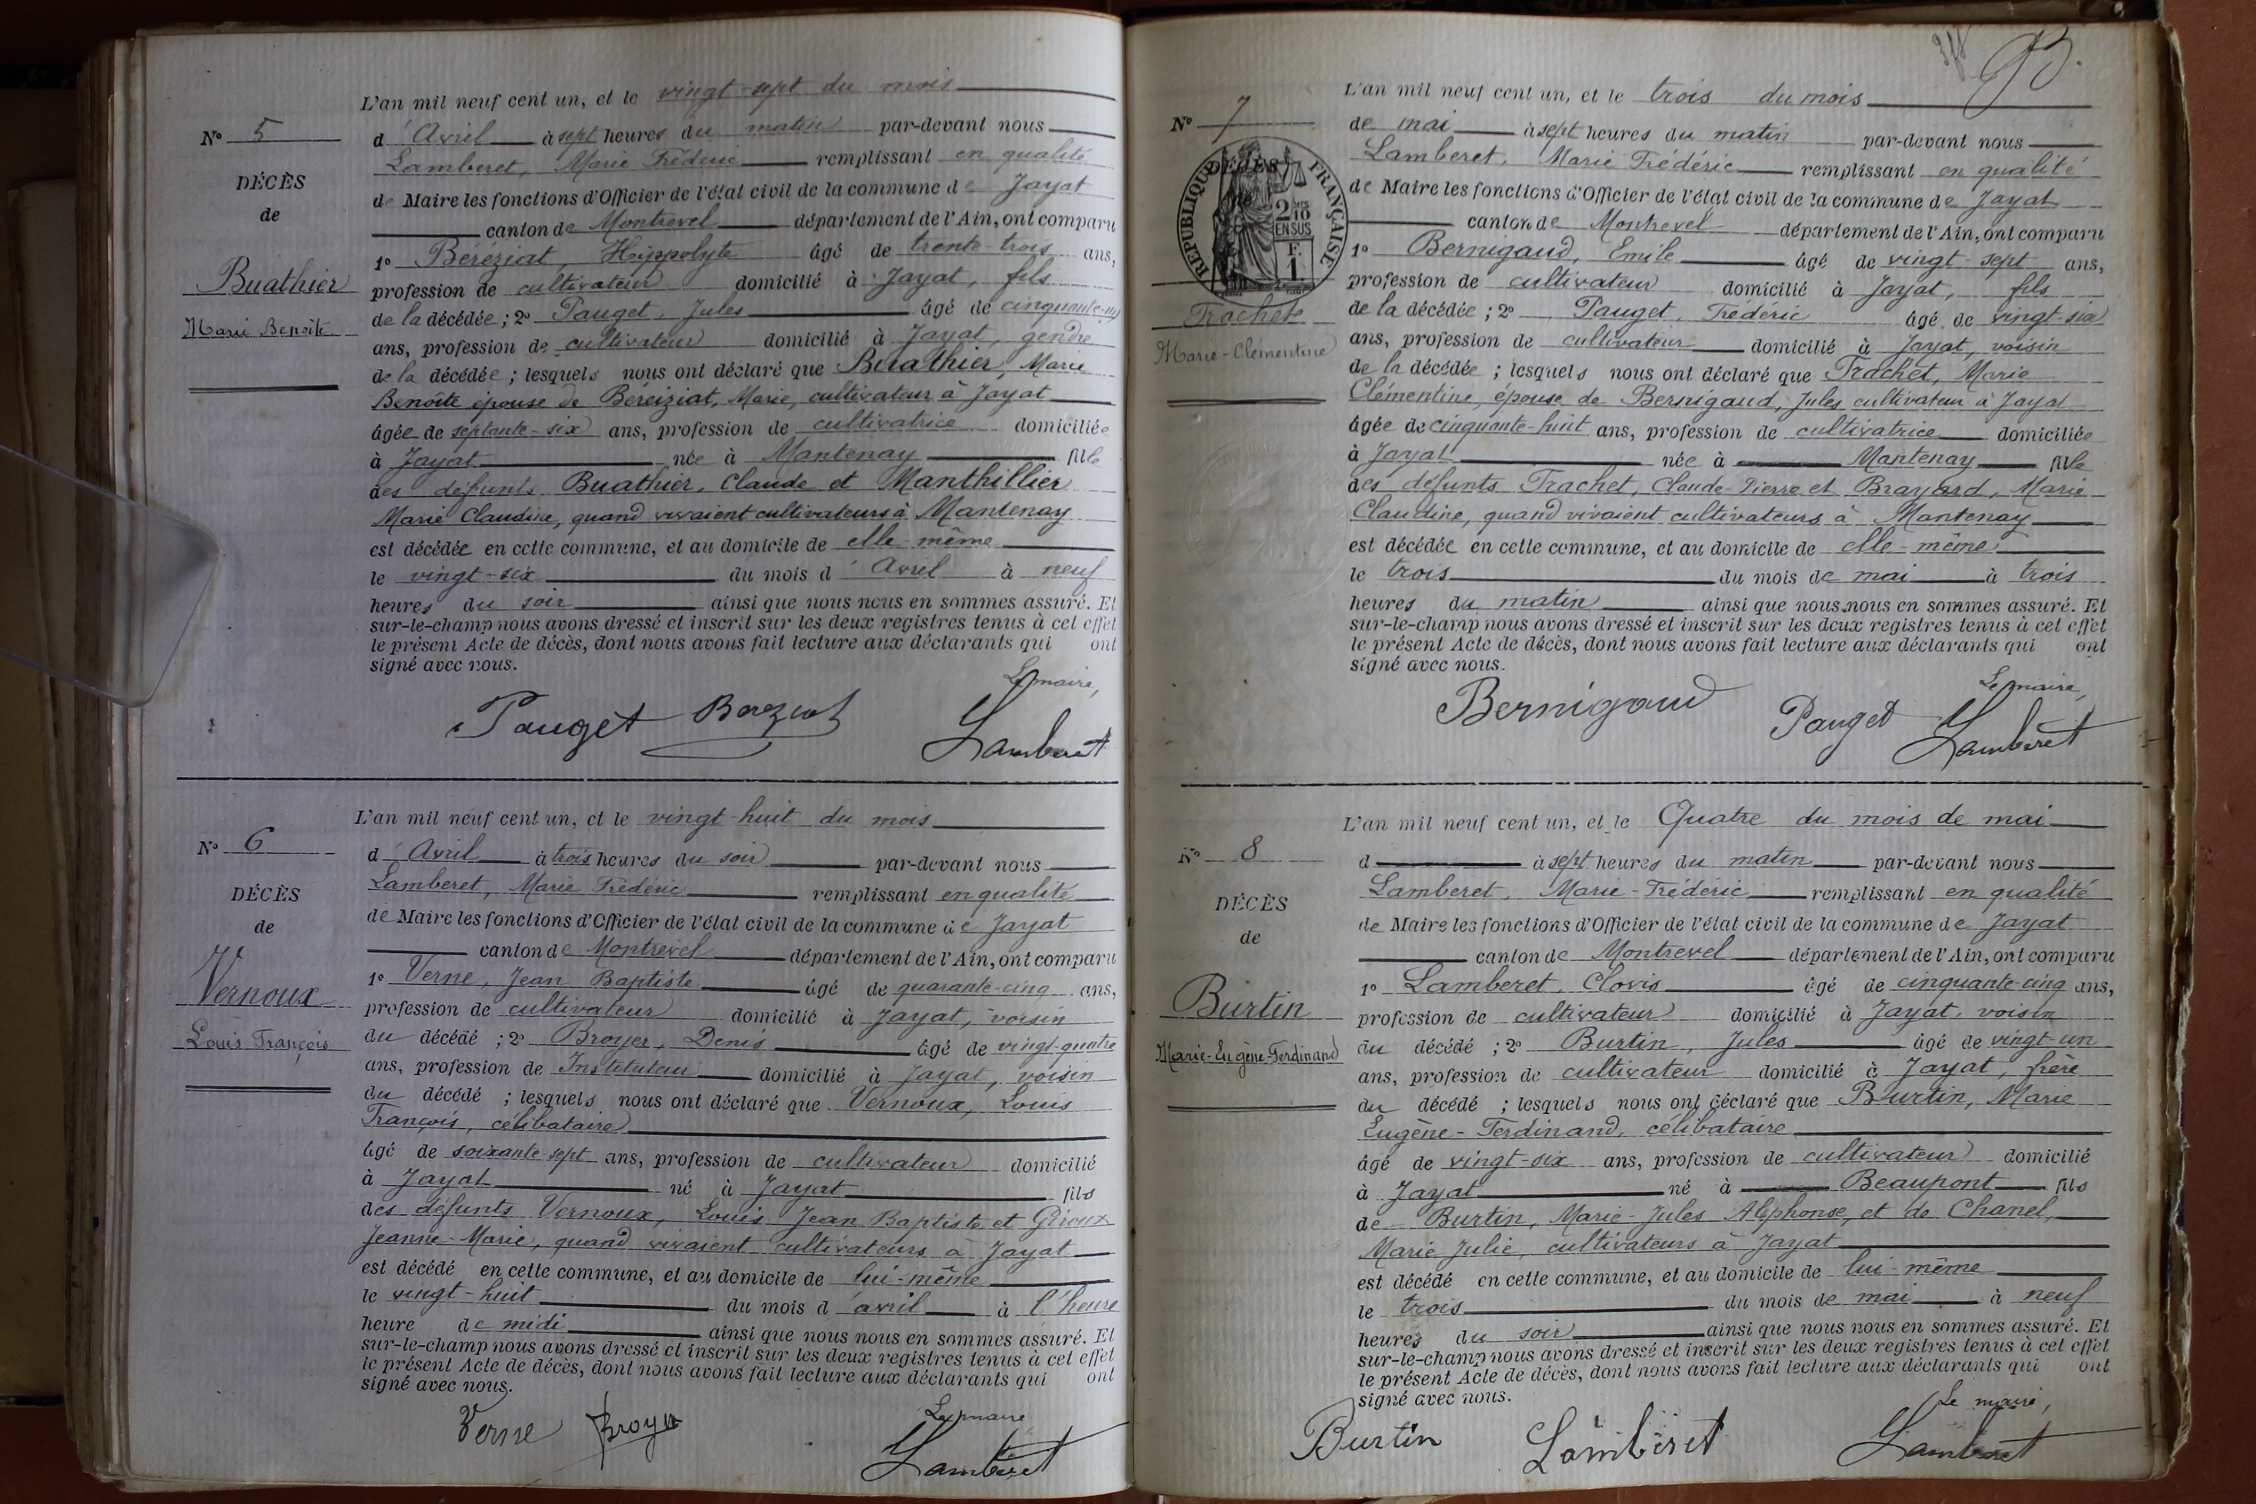 L'an mil neuf cent un, et le vingt-sept du mois
N° 5
d'Avril à sept heures du matin par-devant nous
Lamberet, Marie Frédéric remplissant en qualité
DÉCÈS
de Maire les fonctions d'Officier de l'état civil de la commune de Jayat
de
canton de Montrevel département de l'Ain, ont comparu
1° Béréziat, Hippolyte âgé de trente-trois ans,
Buathier
profession de cultivateur domicilié à Jayat, fils
Marie Benoîte
de la décédée ; 2° Pauget, Jules âgé de
ans, profession de cultivateur domicilié à Jayat, gendre
de la décédée ; lesquels nous ont déclaré que Buathier, Marie
Benoîte épouse de Béréiziat, Marie, cultivateur à Jayat
âgée de septante-six ans, profession de cultivatrice domiciliée
à Jayat née à Mantenay fille
des défunts Buathier, Claude et Manthillier
Marie Claudine, quand vivaient cultivateurs à Mantenay
est décédée en cette commune, et au domicile de elle-même
le vingt-six du mois d'Avril à neuf
heures du soir ainsi que nous nous en sommes assuré. Et
sur-le-champ nous avons dressé et inscrit sur les deux registres tenus à cet effet
le présent Acte de décès, dont nous avons fait lecture aux déclarants qui ont
signé avec nous.
Le maire,
Pauget Bereziat Lamberet
L'an mil neuf cent un, et le vingt-huit du mois
N° 6
d'Avril à trois heures du soir par-devant nous
Lamberet, Marie Frédéric remplissant en qualité
DÉCÈS
de Maire les fonctions d'Officier de l'état civil de la commune de Jayat
de
canton de Montrevel département de l'Ain, ont comparu
1° Verne, Jean Baptiste âgé de quarante-cinq ans,
Vernoux
profession de cultivateur domicilié à Jayat, voisin
Louis François
du décédé ; 2° Broyer, Denis âgé de vingt-quatre
ans, profession de Instituteur domicilié à Jayat, voisin
du décédé ; lesquels nous ont déclaré que Vernoux, Louis
François, célibataire
âgé de soixante-sept ans, profession de cultivateur domicilié
à Jayat né à Jayat fils
des défunts Vernoux, Louis Jean Baptiste et Giroux
Jeanne-Marie, quand vivaient cultivateurs à Jayat
est décédé en cette commune, et au domicile de lui-même
le vingt-huit du mois d'avril à l'heure
heure de midi ainsi que nous nous en sommes assuré. Et
sur-le-champ nous avons dressé et inscrit sur les deux registres tenus à cet effet
le présent Acte de décès, dont nous avons fait lecture aux déclarants qui ont
signé avec nous.
Le maire
Verne Broyer Lamberet
L'an mil neuf cent un, et le trois du mois
N° 7
de mai à sept heures du matin par-devant nous
Lamberet, Marie Frédéric remplissant en qualité
DÉCÈS
RÉPUBLIQUE FRANÇAISE
2/10 EN SUS
F. 1
de Maire les fonctions d'Officier de l'état civil de la commune de Jayat
canton de Montrevel département de l'Ain, ont comparu
1° Bernigaud, Emile âgé de vingt-sept ans,
profession de cultivateur domicilié à Jayat, fils
Trachet
de la décédée ; 2° Pauget, Frédéric âgé de vingt-six
Marie-Clémentine
ans, profession de cultivateur domicilié à Jayat, voisin
de la décédée ; lesquels nous ont déclaré que Trachet, Marie
Clémentine, épouse de Bernigaud, Jules cultivateur à Jayat
âgée de cinquante-huit ans, profession de cultivatrice domiciliée
à Jayat née à Mantenay fille
des défunts Trachet, Claude-Pierre et Brayard, Marie
Claudine, quand vivaient cultivateurs à Mantenay
est décédée en cette commune, et au domicile de elle-même
le trois du mois de mai à trois
heures du matin ainsi que nous nous en sommes assuré. Et
sur-le-champ nous avons dressé et inscrit sur les deux registres tenus à cet effet
le présent Acte de décès, dont nous avons fait lecture aux déclarants qui ont
signé avec nous.
Le maire,
Bernigaud Pauget Lamberet
L'an mil neuf cent un, et le Quatre du mois de mai
N° 8
d à sept heures du matin par-devant nous
Lamberet, Marie-Frédéric remplissant en qualité
DÉCÈS
de Maire les fonctions d'Officier de l'état civil de la commune de Jayat
de
canton de Montrevel département de l'Ain, ont comparu
1° Lamberet, Clovis âgé de cinquante-cinq ans,
Burtin
profession de cultivateur domicilié à Jayat, voisin
Marie-Eugène-Ferdinand
du décédé ; 2° Burtin, Jules âgé de vingt-un
ans, profession de cultivateur domicilié à Jayat, frère
du décédé ; lesquels nous ont déclaré que Burtin, Marie
Eugène-Ferdinand, célibataire
âgé de vingt-six ans, profession de cultivateur domicilié
à Jayat né à Beaupont fils
de Burtin, Marie-Jules Alphonse, et de Chanel,
Marie Julie, cultivateurs à Jayat
est décédé en cette commune, et au domicile de lui-même
le trois du mois de mai à neuf
heures du soir ainsi que nous nous en sommes assuré. Et
sur-le-champ nous avons dressé et inscrit sur les deux registres tenus à cet effet
le présent Acte de décès, dont nous avons fait lecture aux déclarants qui ont
signé avec nous.
Le maire,
Burtin Lamberet Lamberet